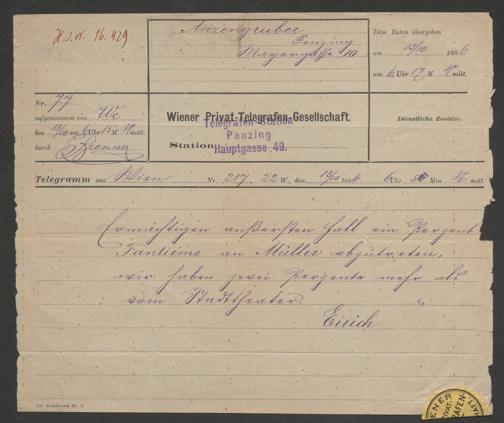 H.I.N. 16.429
Anzengruber
Penzing
Mayergasse 10
Dem Boten übergeben
am 13/10 1886
um 6 Uhr 17 M. N. mitt.
Nr. 77
aufgenommen von We
den 13/10 um 6 Uhr 15 M. N. mitt.
durch Brenner
Wiener Privat-Telegrafen-Gesellschaft.
Telegrafen-Station
Penzing
Station Hauptgasse 49.
Dienstliche Zusätze.
Telegramm aus Wien Nr. 257, 22 W., den 13/10 1886, 6 Uhr Min N. mitt.
Ermächtigen äußersten Fall ein Perzent
Tantième an Müller abzutreten,
wir haben zwei Perzente mehr als
vom Stadttheater
Eirich